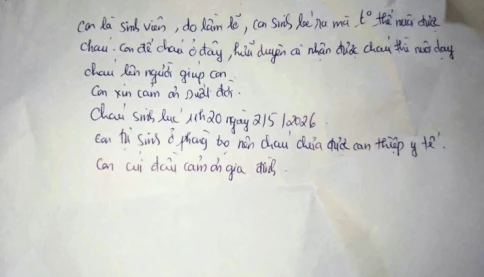 Con là sinh viên, do lầm lỡ, con sinh bé ra mà k° thể nuôi được
cháu. Con để cháu ở đây, hữu duyên cô nhận được cháu thì nuôi dạy
cháu lên người giúp con.
Con xin cảm ơn suốt đời.
Cháu sinh lúc 11h20 ngày 2/5/2026
Con tự sinh ở phòng trọ nên cháu chưa được can thiệp y tế.
Con cúi đầu cảm ơn gia đình.